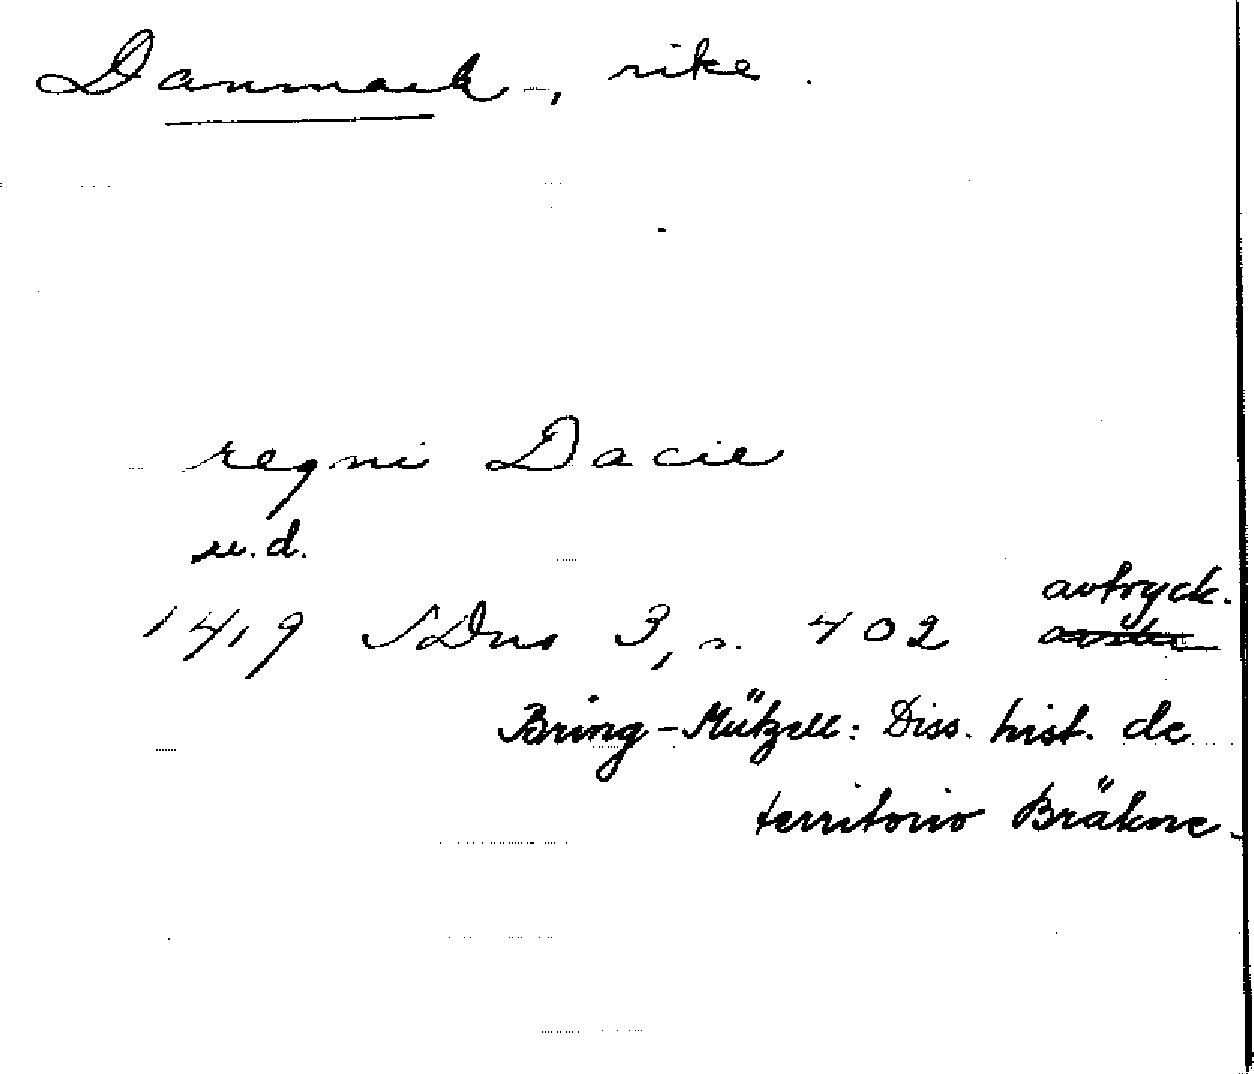 Danmark, rike.
regni Dacie
u.d.
avtryck.
1419 SDns 3, s. 402
Bring-Mützell: Diss. hist. de
territorio Bräkne-